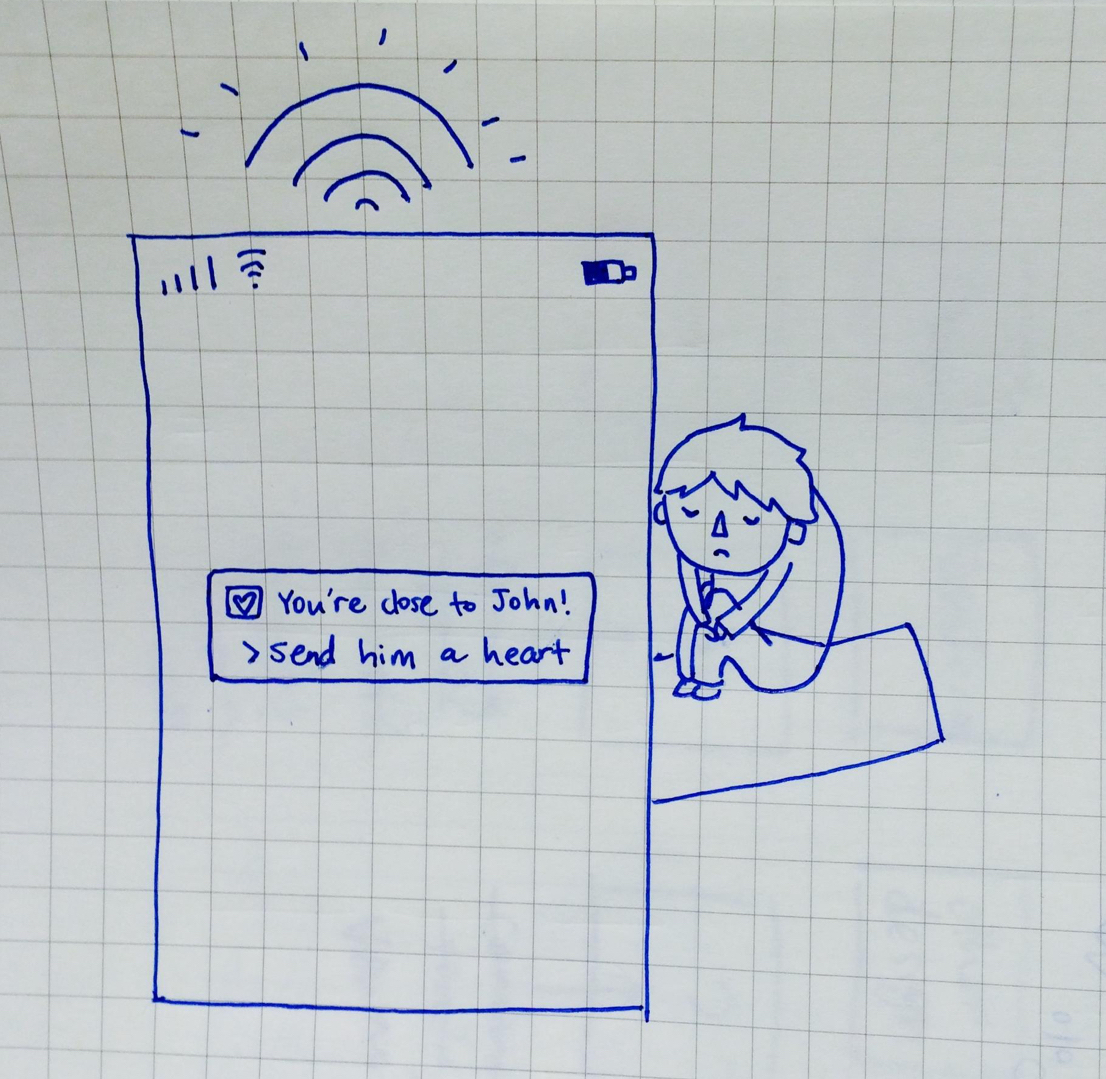 You're close to John!
> send him a heart